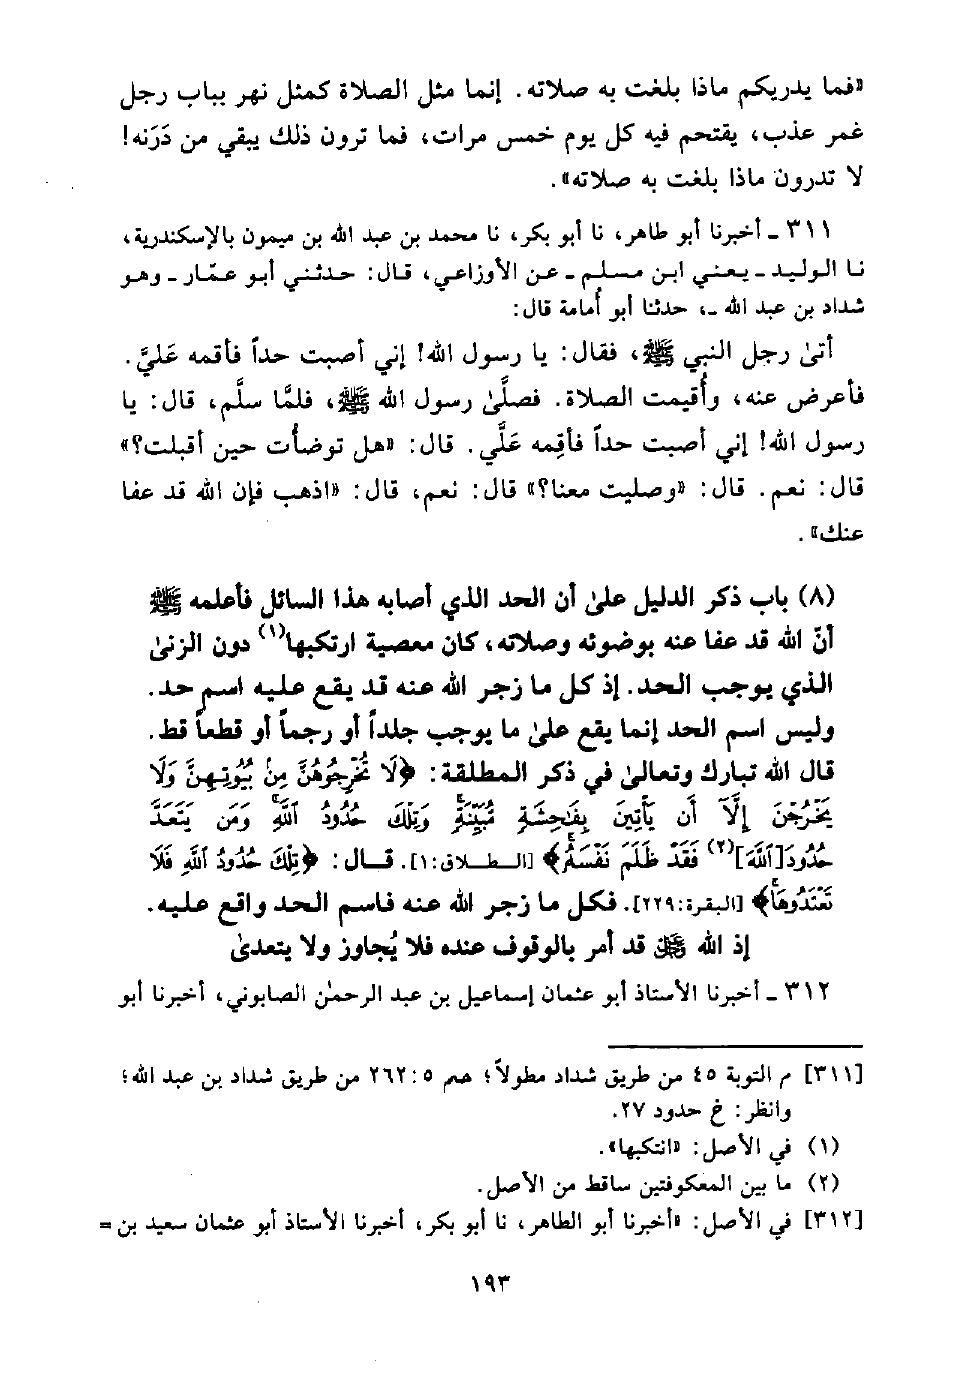 «فما يدريكم ماذا بلغت به صلاته. إنما مثل الصلاة كمثل نهر بباب رجل
غمر عذب، يقتحم فيه كل يوم خمس مرات، فما ترون ذلك يبقي من دَرَنه!
لا تدرون ماذا بلغت به صلاته».
٣١١ ـ أخبرنا أبو طاهر، نا أبو بكر، نا محمد بن عبد الله بن ميمون بالإسكندرية،
نا الوليد ـ يعني ابن مسلم ـ عن الأوزاعي، قال: حدثني أبو عمّار ـ وهو
شداد بن عبد الله ـ، حدثنا أبو أُمامة قال:
أتىٰ رجل النبي ﷺ، فقال: يا رسول الله! إني أصبت حداً فأقمه عَليَّ.
فأعرض عنه، وأُقيمت الصلاة. فصلَّىٰ رسول الله ﷺ، فلمَّا سلَّم، قال: يا
رسول الله! إني أصبت حداً فأقِمه عَلَّي. قال: «هل توضأت حين أقبلت؟»
قال: نعم. قال: «وصليت معنا؟» قال: نعم، قال: «اذهب فإن الله قد عفا
عنك».
(٨) باب ذكر الدليل علىٰ أن الحد الذي أصابه هذا السائل فأعلمه ﷺ
أنّ الله قد عفا عنه بوضوئه وصلاته، كان معصية ارتكبها(١) دون الزنىٰ
الذي يوجب الحد. إذ كل ما زجر الله عنه قد يقع عليه اسم حد.
وليس اسم الحد إنما يقع علىٰ ما يوجب جلداً أو رجماً أو قطعاً قط.
قال الله تبارك وتعالىٰ في ذكر المطلقة: ﴿لَا تُخْرِجُوهُنَّ مِنْ بُيُوتِهِنَّ وَلَا
يَخْرُجْنَ إِلَّآ أَن يَأْتِينَ بِفَاحِشَةٍ مُّبَيِّنَةٍ وَتِلْكَ حُدُودُ ٱللَّهِ وَمَن يَتَعَدَّ
حُدُودَ[ٱللَّهِ](٢) فَقَدْ ظَلَمَ نَفْسَهُ﴾ [الطلاق:١]. قال: ﴿تِلْكَ حُدُودُ ٱللَّهِ فَلَا
تَعْتَدُوهَا﴾ [البقرة:٢٢٩]. فكل ما زجر الله عنه فاسم الحد واقع عليه.
إذ الله ﷻ قد أمر بالوقوف عنده فلا يُجاوز ولا يتعدىٰ
٣١٢ ـ أخبرنا الأستاذ أبو عثمان إسماعيل بن عبد الرحمٰن الصابوني، أخبرنا أبو
[٣١١] م التوبة ٤٥ من طريق شداد مطولاً؛ حم ٥:٢٦٢ من طريق شداد بن عبد الله؛
وانظر: خ حدود ٢٧.
(١) في الأصل: «انتكبها».
(٢) ما بين المعكوفتين ساقط من الأصل.
[٣١٢] في الأصل: «أخبرنا أبو الطاهر، نا أبو بكر، أخبرنا الأستاذ أبو عثمان سعيد بن =
١٩٣